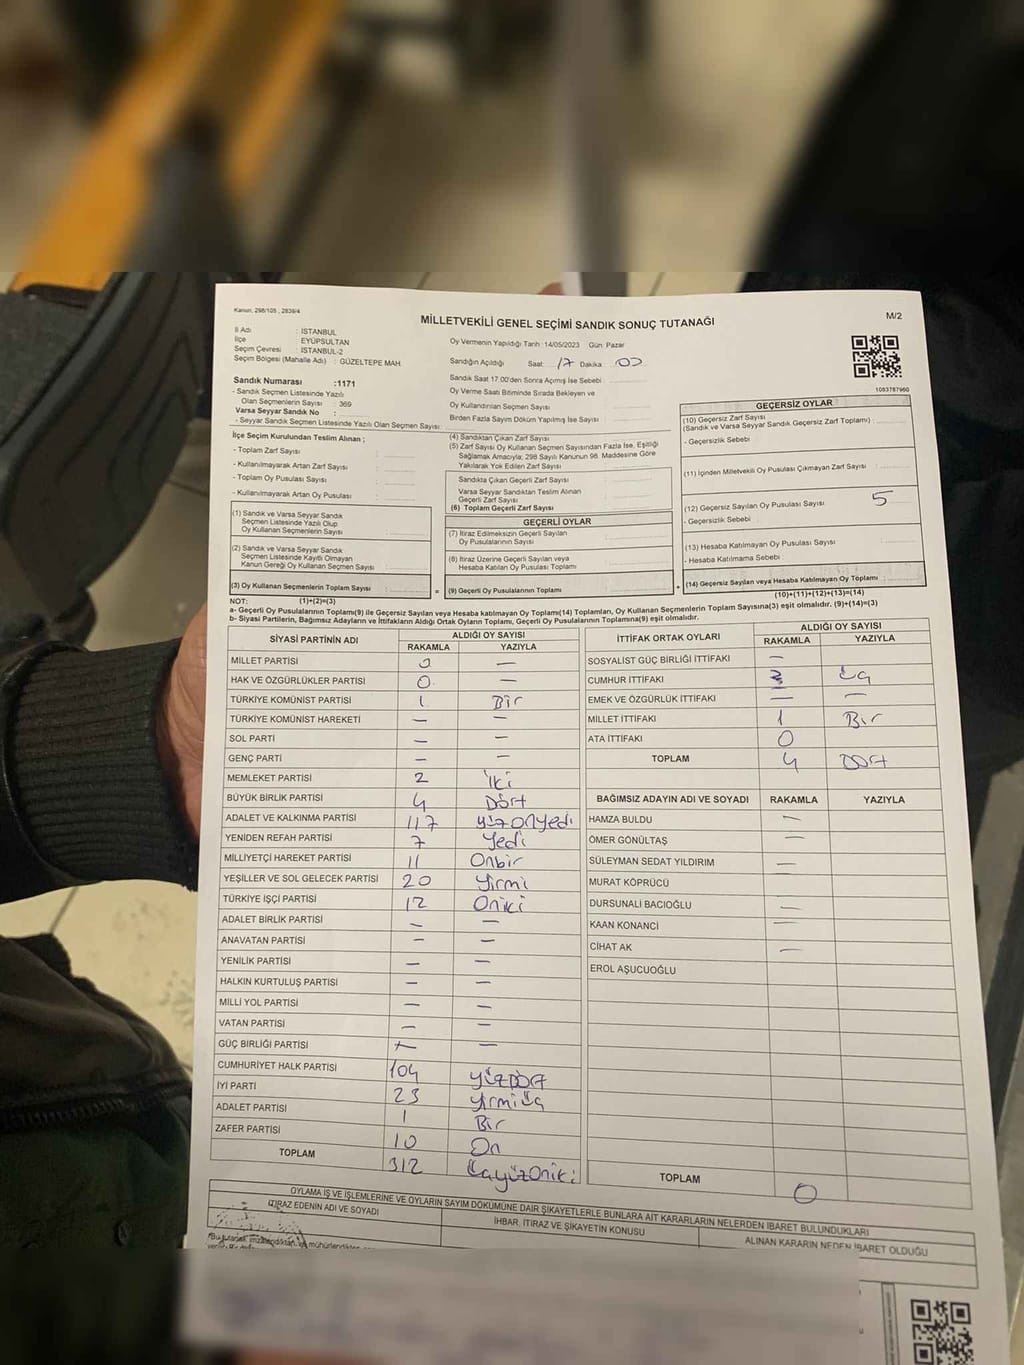 Kanun: 298/105 , 2839/4
MİLLETVEKİLİ GENEL SEÇİMİ SANDIK SONUÇ TUTANAĞI
M/2
İl Adı : İSTANBUL
İlçe : EYÜPSULTAN
Seçim Çevresi : İSTANBUL-2
Seçim Bölgesi (Mahalle Adı) : GÜZELTEPE MAH
Oy Vermenin Yapıldığı Tarih :14/05/2023 Gün: Pazar
Sandığın Açıldığı Saat: 17 Dakika: 00
Sandık Saat 17:00'den Sonra Açılmış İse Sebebi :
Oy Verme Saati Bitiminde Sırada Bekleyen ve
Oy Kullandırılan Seçmen Sayısı :
Birden Fazla Sayım Döküm Yapılmış İse Sayısı :
1083787960
Sandık Numarası :1171
- Sandık Seçmen Listesinde Yazılı
Olan Seçmenlerin Sayısı : 369
Varsa Seyyar Sandık No :
- Seyyar Sandık Seçmen Listesinde Yazılı Olan Seçmen Sayısı:
İlçe Seçim Kurulundan Teslim Alınan ;
- Toplam Zarf Sayısı :
- Kullanılmayarak Artan Zarf Sayısı :
- Toplam Oy Pusulası Sayısı :
- Kullanılmayarak Artan Oy Pusulası :
(1) Sandık ve Varsa Seyyar Sandık
Seçmen Listesinde Yazılı Olup
Oy Kullanan Seçmenlerin Sayısı :
(2) Sandık ve Varsa Seyyar Sandık
Seçmen Listesinde Kayıtlı Olmayan
Kanun Gereği Oy Kullanan Seçmen Sayısı :
(3) Oy Kullanan Seçmenlerin Toplam Sayısı :
(4) Sandıktan Çıkan Zarf Sayısı
(5) Zarf Sayısı Oy Kullanan Seçmen Sayısından Fazla İse, Eşitliği
Sağlamak Amacıyla; 298 Sayılı Kanunun 98. Maddesine Göre
Yakılarak Yok Edilen Zarf Sayısı
Sandıkta Çıkan Geçerli Zarf Sayısı
Varsa Seyyar Sandıktan Teslim Alınan
Geçerli Zarf Sayısı
(6) Toplam Geçerli Zarf Sayısı
GEÇERLİ OYLAR
(7) İtiraz Edilmeksizin Geçerli Sayılan
Oy Pusulalarının Sayısı
(8) İtiraz Üzerine Geçerli Sayılan veya
Hesaba Katılan Oy Pusulası Toplamı
= (9) Geçerli Oy Pusulalarının Toplamı :
GEÇERSİZ OYLAR
(10) Geçersiz Zarf Sayısı
(Sandık ve Varsa Seyyar Sandık Geçersiz Zarf Toplamı) :
- Geçersizlik Sebebi :
(11) İçinden Milletvekili Oy Pusulası Çıkmayan Zarf Sayısı :
(12) Geçersiz Sayılan Oy Pusulası Sayısı 5
- Geçersizlik Sebebi :
(13) Hesaba Katılmayan Oy Pusulası Sayısı :
- Hesaba Katılmama Sebebi :
+ (14) Geçersiz Sayılan veya Hesaba Katılmayan Oy Toplamı :
NOT: (1)+(2)=(3) (10)+(11)+(12)+(13)=(14)
a- Geçerli Oy Pusulalarının Toplamı(9) ile Geçersiz Sayılan veya Hesaba katılmayan Oy Toplamı(14) Toplamları, Oy Kullanan Seçmenlerin Toplam Sayısına(3) eşit olmalıdır. (9)+(14)=(3)
b- Siyasi Partilerin, Bağımsız Adayların ve İttifakların Aldığı Ortak Oyların Toplamı, Geçerli Oy Pusulalarının Toplamına(9) eşit olmalıdır.
SİYASİ PARTİNİN ADI ALDIĞI OY SAYISI
RAKAMLA YAZIYLA
MİLLET PARTİSİ 0 —
HAK VE ÖZGÜRLÜKLER PARTİSİ 0 —
TÜRKİYE KOMÜNİST PARTİSİ 1 Bir
TÜRKİYE KOMÜNİST HAREKETİ — —
SOL PARTİ — —
GENÇ PARTİ — —
MEMLEKET PARTİSİ 2 İki
BÜYÜK BİRLİK PARTİSİ 4 Dört
ADALET VE KALKINMA PARTİSİ 117 yüzonyedi
YENİDEN REFAH PARTİSİ 7 Yedi
MİLLİYETÇİ HAREKET PARTİSİ 11 Onbir
YEŞİLLER VE SOL GELECEK PARTİSİ 20 Yirmi
TÜRKİYE İŞÇİ PARTİSİ 12 Oniki
ADALET BİRLİK PARTİSİ — —
ANAVATAN PARTİSİ — —
YENİLİK PARTİSİ — —
HALKIN KURTULUŞ PARTİSİ — —
MİLLİ YOL PARTİSİ — —
VATAN PARTİSİ — —
GÜÇ BİRLİĞİ PARTİSİ — —
CUMHURİYET HALK PARTİSİ 104 yüzDört
İYİ PARTİ 23 yirmiüç
ADALET PARTİSİ 1 Bir
ZAFER PARTİSİ 10 On
TOPLAM 312 üçyüzoniki
İTTİFAK ORTAK OYLARI ALDIĞI OY SAYISI
RAKAMLA YAZIYLA
SOSYALİST GÜÇ BİRLİĞİ İTTİFAKI —
CUMHUR İTTİFAKI 3 üç
EMEK VE ÖZGÜRLÜK İTTİFAKI — —
MİLLET İTTİFAKI 1 Bir
ATA İTTİFAKI 0
TOPLAM 4 Dört
BAĞIMSIZ ADAYIN ADI VE SOYADI RAKAMLA YAZIYLA
HAMZA BULDU —
ÖMER GÖNÜLTAŞ —
SÜLEYMAN SEDAT YILDIRIM —
MURAT KÖPRÜCÜ
DURSUNALİ BACIOĞLU —
KAAN KONANCİ
CİHAT AK —
EROL AŞUCUOĞLU
TOPLAM 0
OYLAMA İŞ VE İŞLEMLERİNE VE OYLARIN SAYIM DÖKÜMÜNE DAİR ŞİKAYETLERLE BUNLARA AİT KARARLARIN NELERDEN İBARET BULUNDUKLARI
İTİRAZ EDENİN ADI VE SOYADI İHBAR, İTİRAZ VE ŞİKAYETİN KONUSU ALINAN KARARIN NEDEN İBARET OLDUĞU